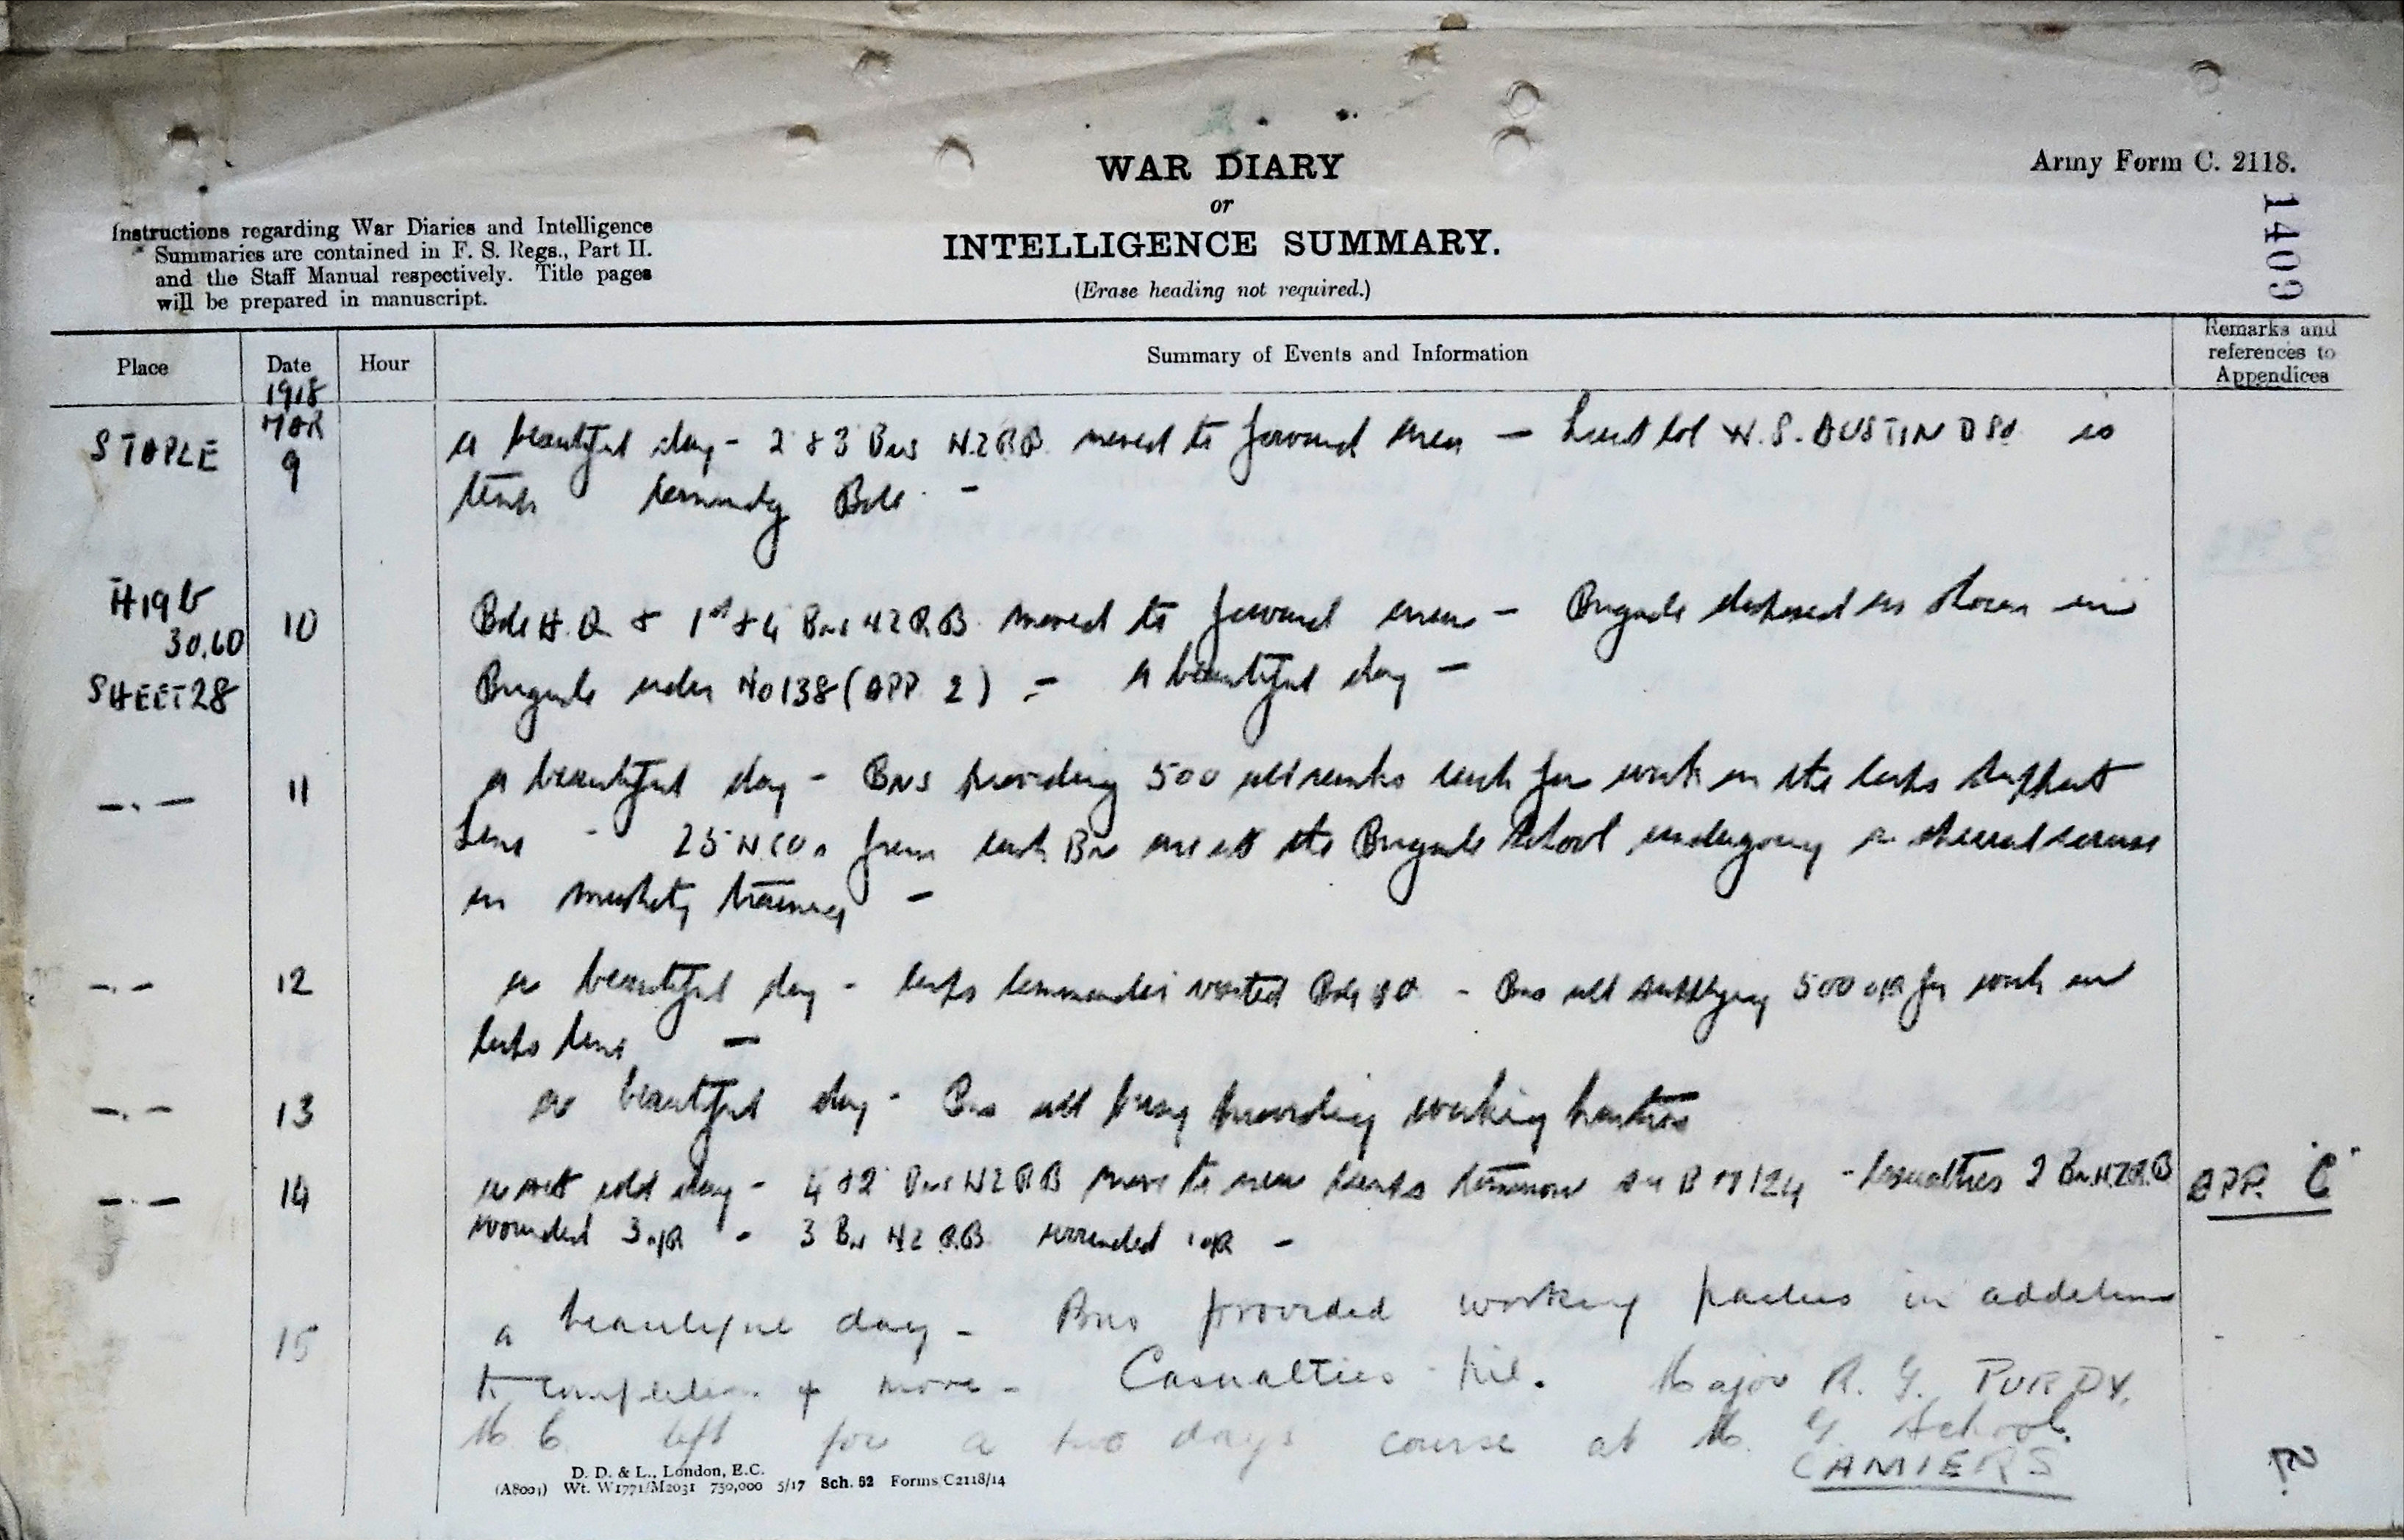 WAR DIARY
or
INTELLIGENCE SUMMARY.
(Erase heading not required.)
Army Form C. 2118.
1409
Instructions regarding War Diaries and Intelligence
Summaries are contained in F. S. Regs., Part II.
and the Staff Manual respectively. Title pages
will be prepared in manuscript.
Place Date Hour Summary of Events and Information Remarks and references to Appendices
1918
MAR
STAPLE 9 A beautiful day - 2 & 3 Bns N.Z.R.B. moved to forward area — Lieut Col W.S. AUSTIN DSO is
temp commdg Bde. -
H19b
30.60
SHEET 28
10 Bde H.Q. & 1st & 4 Bns NZRB moved to forward area - Brigade disposed as shown in
Brigade order No 138 (APP. 2) - A beautiful day -
-.- 11 A beautiful day - Bns providing 500 all ranks each for work on the Corps Support
Line - 25 NCOs from each Bn are at the Brigade School undergoing a special course
in musketry training -
-.- 12 A beautiful day - Corps Commander visited Bde HQ. - Bns all supplying 500 O/R for work on
Corps Line -
-.- 13 A beautiful day - Bns all busy providing working parties
-.- 14 A wet cold day - 4 & 2 Bns NZRB move to new tomorrow BM 124 - Casualties 2 Bn. N.Z.R.B APP. "C"
wounded 3 O/R - 3 Bn NZ.R.B. wounded 1 O/R -
15 a beautiful day - Bns provided working parties in addition
to completion of move - Casualties - Nil. Major R. G. PURDY.
M.C. left for a two days course at M. G. School.
CAMIERS
D. D. & L., London, E.C.
(A8001) Wt. W1771/M2031 750,000 5/17 Sch. 52 Forms C2118/14